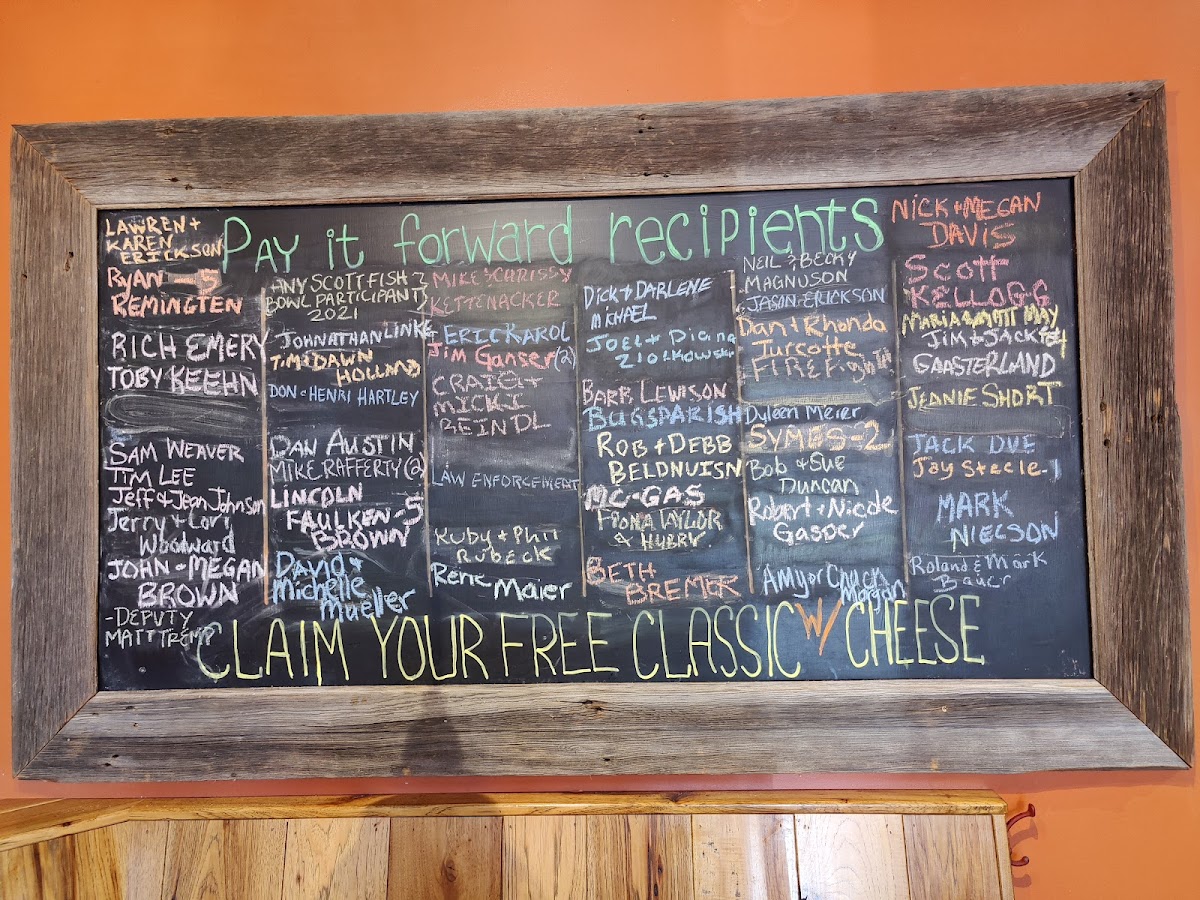 Pay it forward recipients
LAWREN +
KAREN
ERICKSON
RYAN -5
REMINGTEN
RICH EMERY
TOBY KEEHN
SAM WEAVER
TIM LEE
Jeff & Jean Johnson
Jerry + Lori
Woodward
JOHN + MEGAN
BROWN
-DEPUTY
MATT TREMP
ANY SCOTT FISH
BOWL PARTICIPANT
2021
JOHNATHAN LINKE
TIM & DAWN
HOLLAND
DON & HENRI HARTLEY
DAN AUSTIN
MIKE RAFFERTY (2)
LINCOLN
FAULKEN-5
BROWN
David +
Michelle
Mueller
MIKE & CHRISSY
KETTENACKER
ERIC KAROL
Jim Ganser (2)
CRAIG +
MICKI
REINDL
LAW ENFORCEMENT
Kuby + Phil
RUBECK
Rene Maier
DICK & DARLENE
MICHAEL
JOEL + Diana
ZIOLKOWSKI
BARB LEWISON
BUGSPARISH
ROB + DEBB
BELDNUISN
MC-GAS
FIONA TAYLOR
& HUBBY
BETH
BREMER
NEIL & BECKY
MAGNUSON
JASON ERICKSON
Dan + Rhonda
Turcotte
FIREFighTN
Dyleen Meier
SYMES-2
Bob & Sue
Duncan
Robert + Nicole
Gasper
Amy or Chuck
Morgan
NICK + MEGAN
DAVIS
SCOTT
KELLOGG
MARIA & MATT MAY
Jim + JACKIE
GAASTERLAND
JEANIE SHORT
JACK DUE
Jay Steele-
MARK
NIELSON
Roland & Mark
Bauer
CLAIM YOUR FREE CLASSIC W/ CHEESE